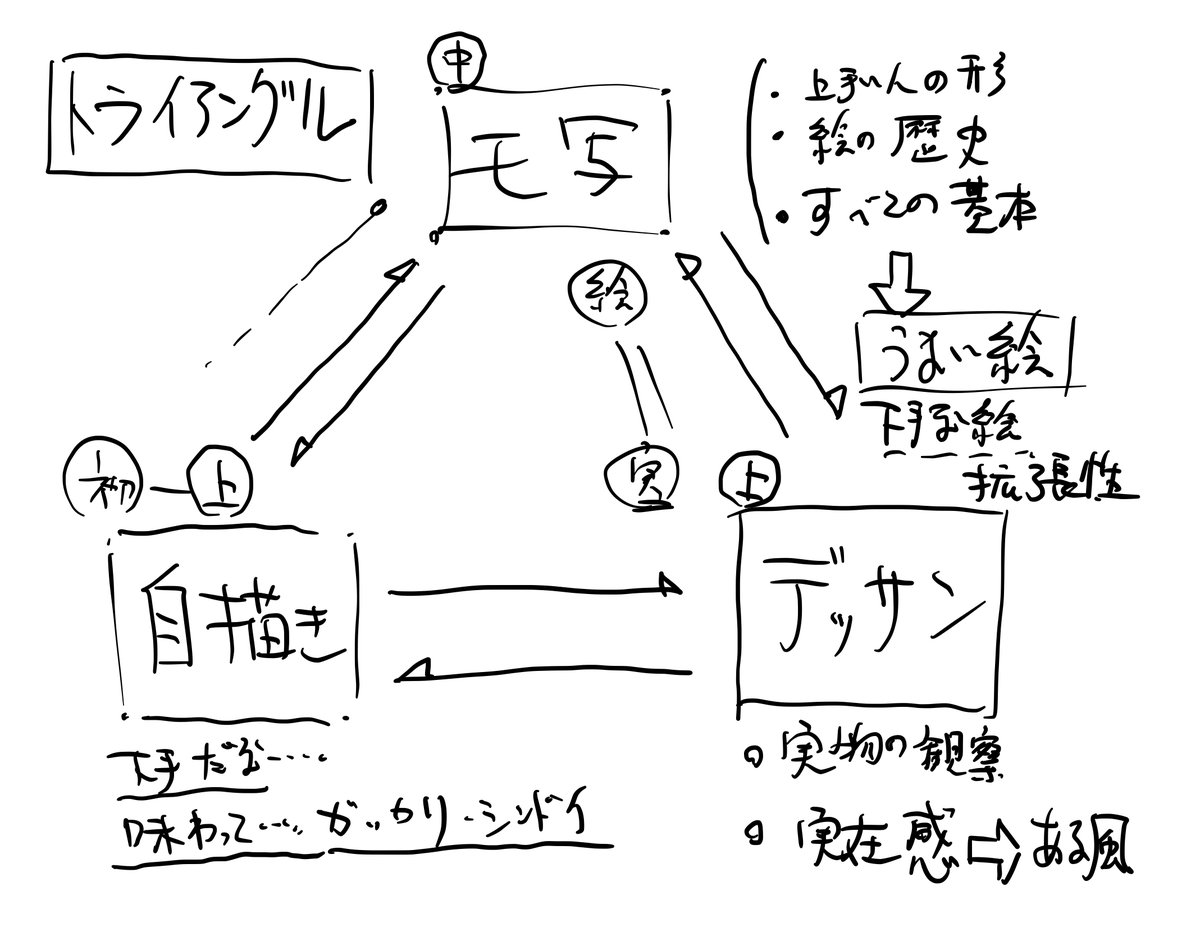 トライアングル
中
模写
・上手い人の形
・絵の歴史
・すべての基本
うまい絵
下手な絵
拡張性
絵
実
初
上
自描き
下手だな‥‥
味わって‥‥ガッカリ・シンドイ
上
デッサン
実物の観察
実在感⇨ある風